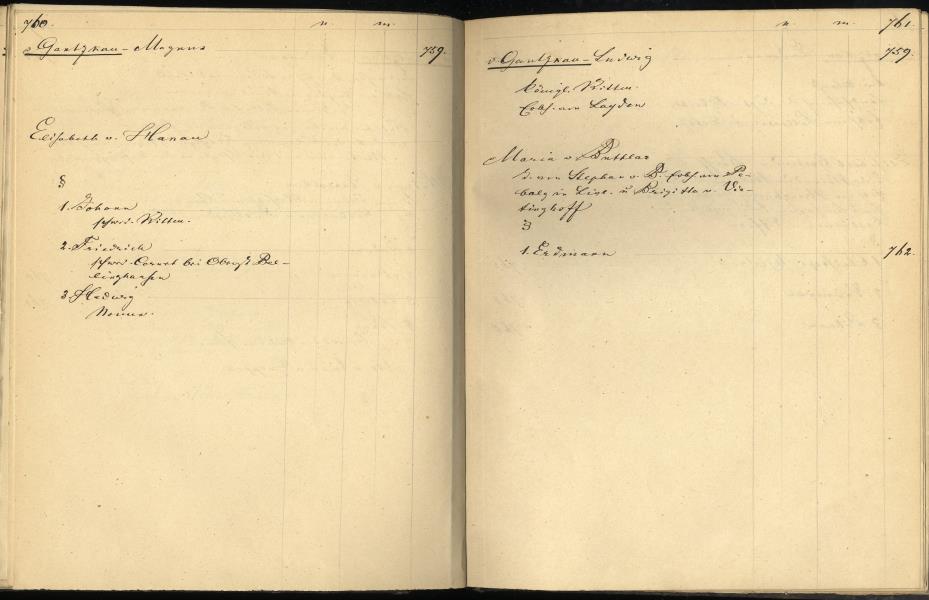 760. n. m.
v Gantzkau - Magnus 759.
Elisabeth v. Hanau
§
1. Johann
schwed. Rittm.
2. Friedrich
schwed. Cornet bei Oberst Bel-
linghausen
3. Hedwig
Nonne.
n. m. 761.
v Gantzkau - Ludwig 759.
königl. Rittm.
Erbh. von Layden
Maria v Buttlar
T. von Stephan v. B. Erbh. von Pe-
balg in Livl. u Brigitta v. Vie-
tinghoff
§
1. Erdmann 762.